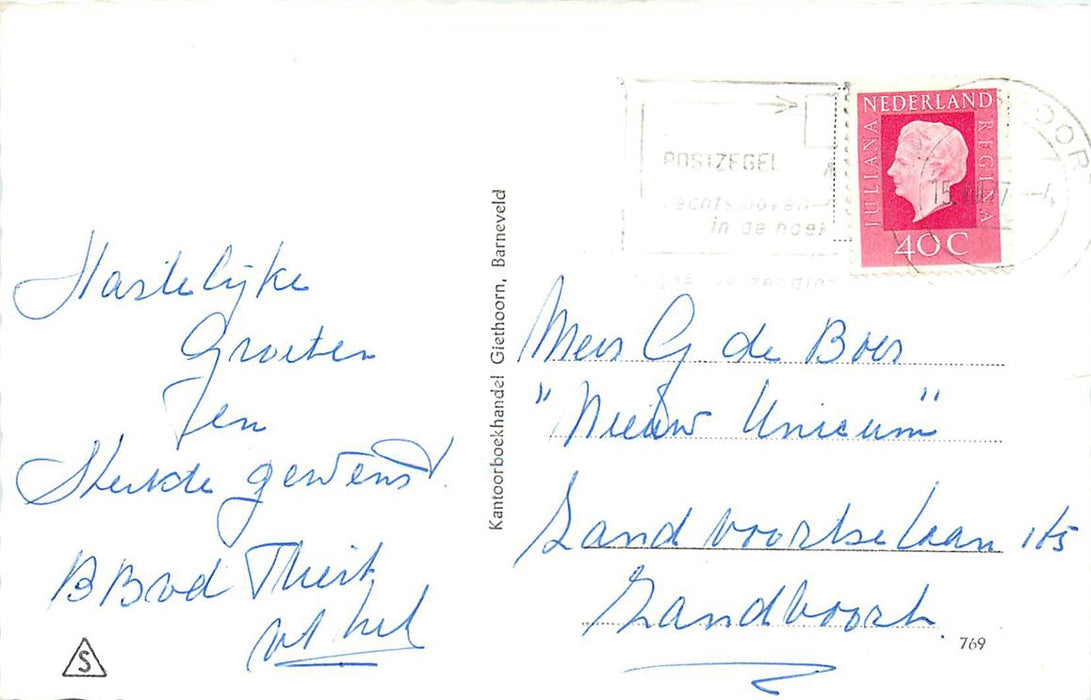 Hartelijke
Groeten
Jen
Sterkte gewenst!
Kantoorboekhandel Giethoorn, Barneveld
POSTZEGEL
rechtsboven
in de hoek
NEDERLAND
JULIANA
REGINA
40 C
15 77 -4
Mevr G de Boer
"Nieuw Unicum"
Zandvoortselaan 165
Zandvoort.
769
S